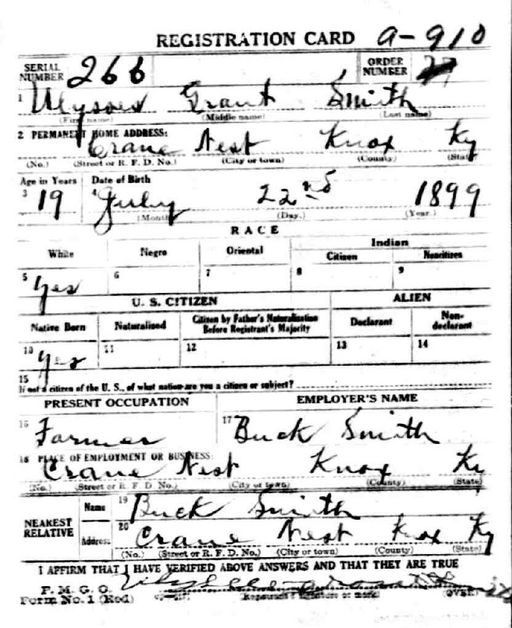 REGISTRATION CARD a-910
SERIAL NUMBER 266 ORDER NUMBER
1 Ulysses Grant Smith
(First name) (Middle name) (Last name)
2 PERMANENT HOME ADDRESS:
Crane Nest Knox Ky
(No.) (Street or R. F. D. No.) (City or town) (County) (State)
Age in Years Date of Birth
3 19 4 July 22nd 1899
(Month) (Day.) (Year.)
RACE
White Negro Oriental Indian
Citizen Noncitizen
5 Yes 6 7 8 9
U. S. CITIZEN ALIEN
Native Born Naturalized Citizen by Father's Naturalization Before Registrant's Majority Declarant Non-declarant
10 Yes 11 12 13 14
15
If not a citizen of the U. S., of what nation are you a citizen or subject?
PRESENT OCCUPATION EMPLOYER'S NAME
16 Farmer 17 Buck Smith
18 PLACE OF EMPLOYMENT OR BUSINESS:
Crane Nest Knox Ky
(No.) (Street or R. F. D. No.) (City or town) (County) (State)
NEAREST RELATIVE Name 19 Buck Smith
Address 20 Crane Nest Knox Ky
(No.) (Street or R. F. D. No.) (City or town) (County) (State)
I AFFIRM THAT I HAVE VERIFIED ABOVE ANSWERS AND THAT THEY ARE TRUE
P. M. G. O.
Form No. 1 (Red) (Registrant's signature or mark) (OVER)